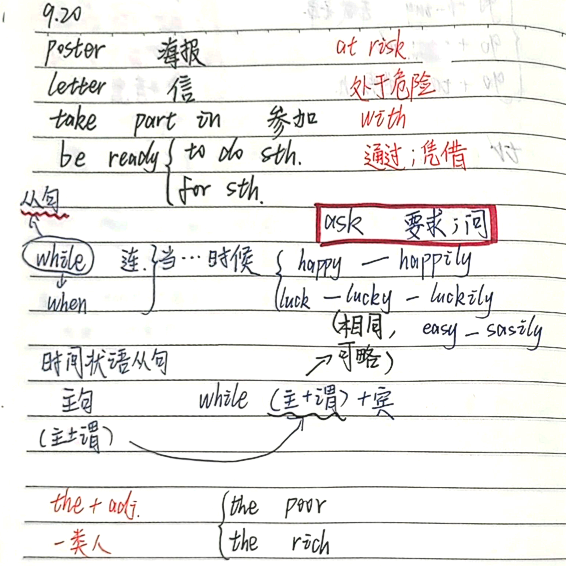 9.20
poster 海报 at risk.
letter 信 处于危险
take part in 参加 with
be ready { to do sth. 通过;凭借
for sth.
从句
ask 要求;问
while 连. } 当…时候 { happy — happily
when luck — lucky — luckily
(相同, easy — sasily
时间状语从句 可略)
主句 while (主+谓)+宾
(主+谓)
the + adj. { the poor
一类人 the rich